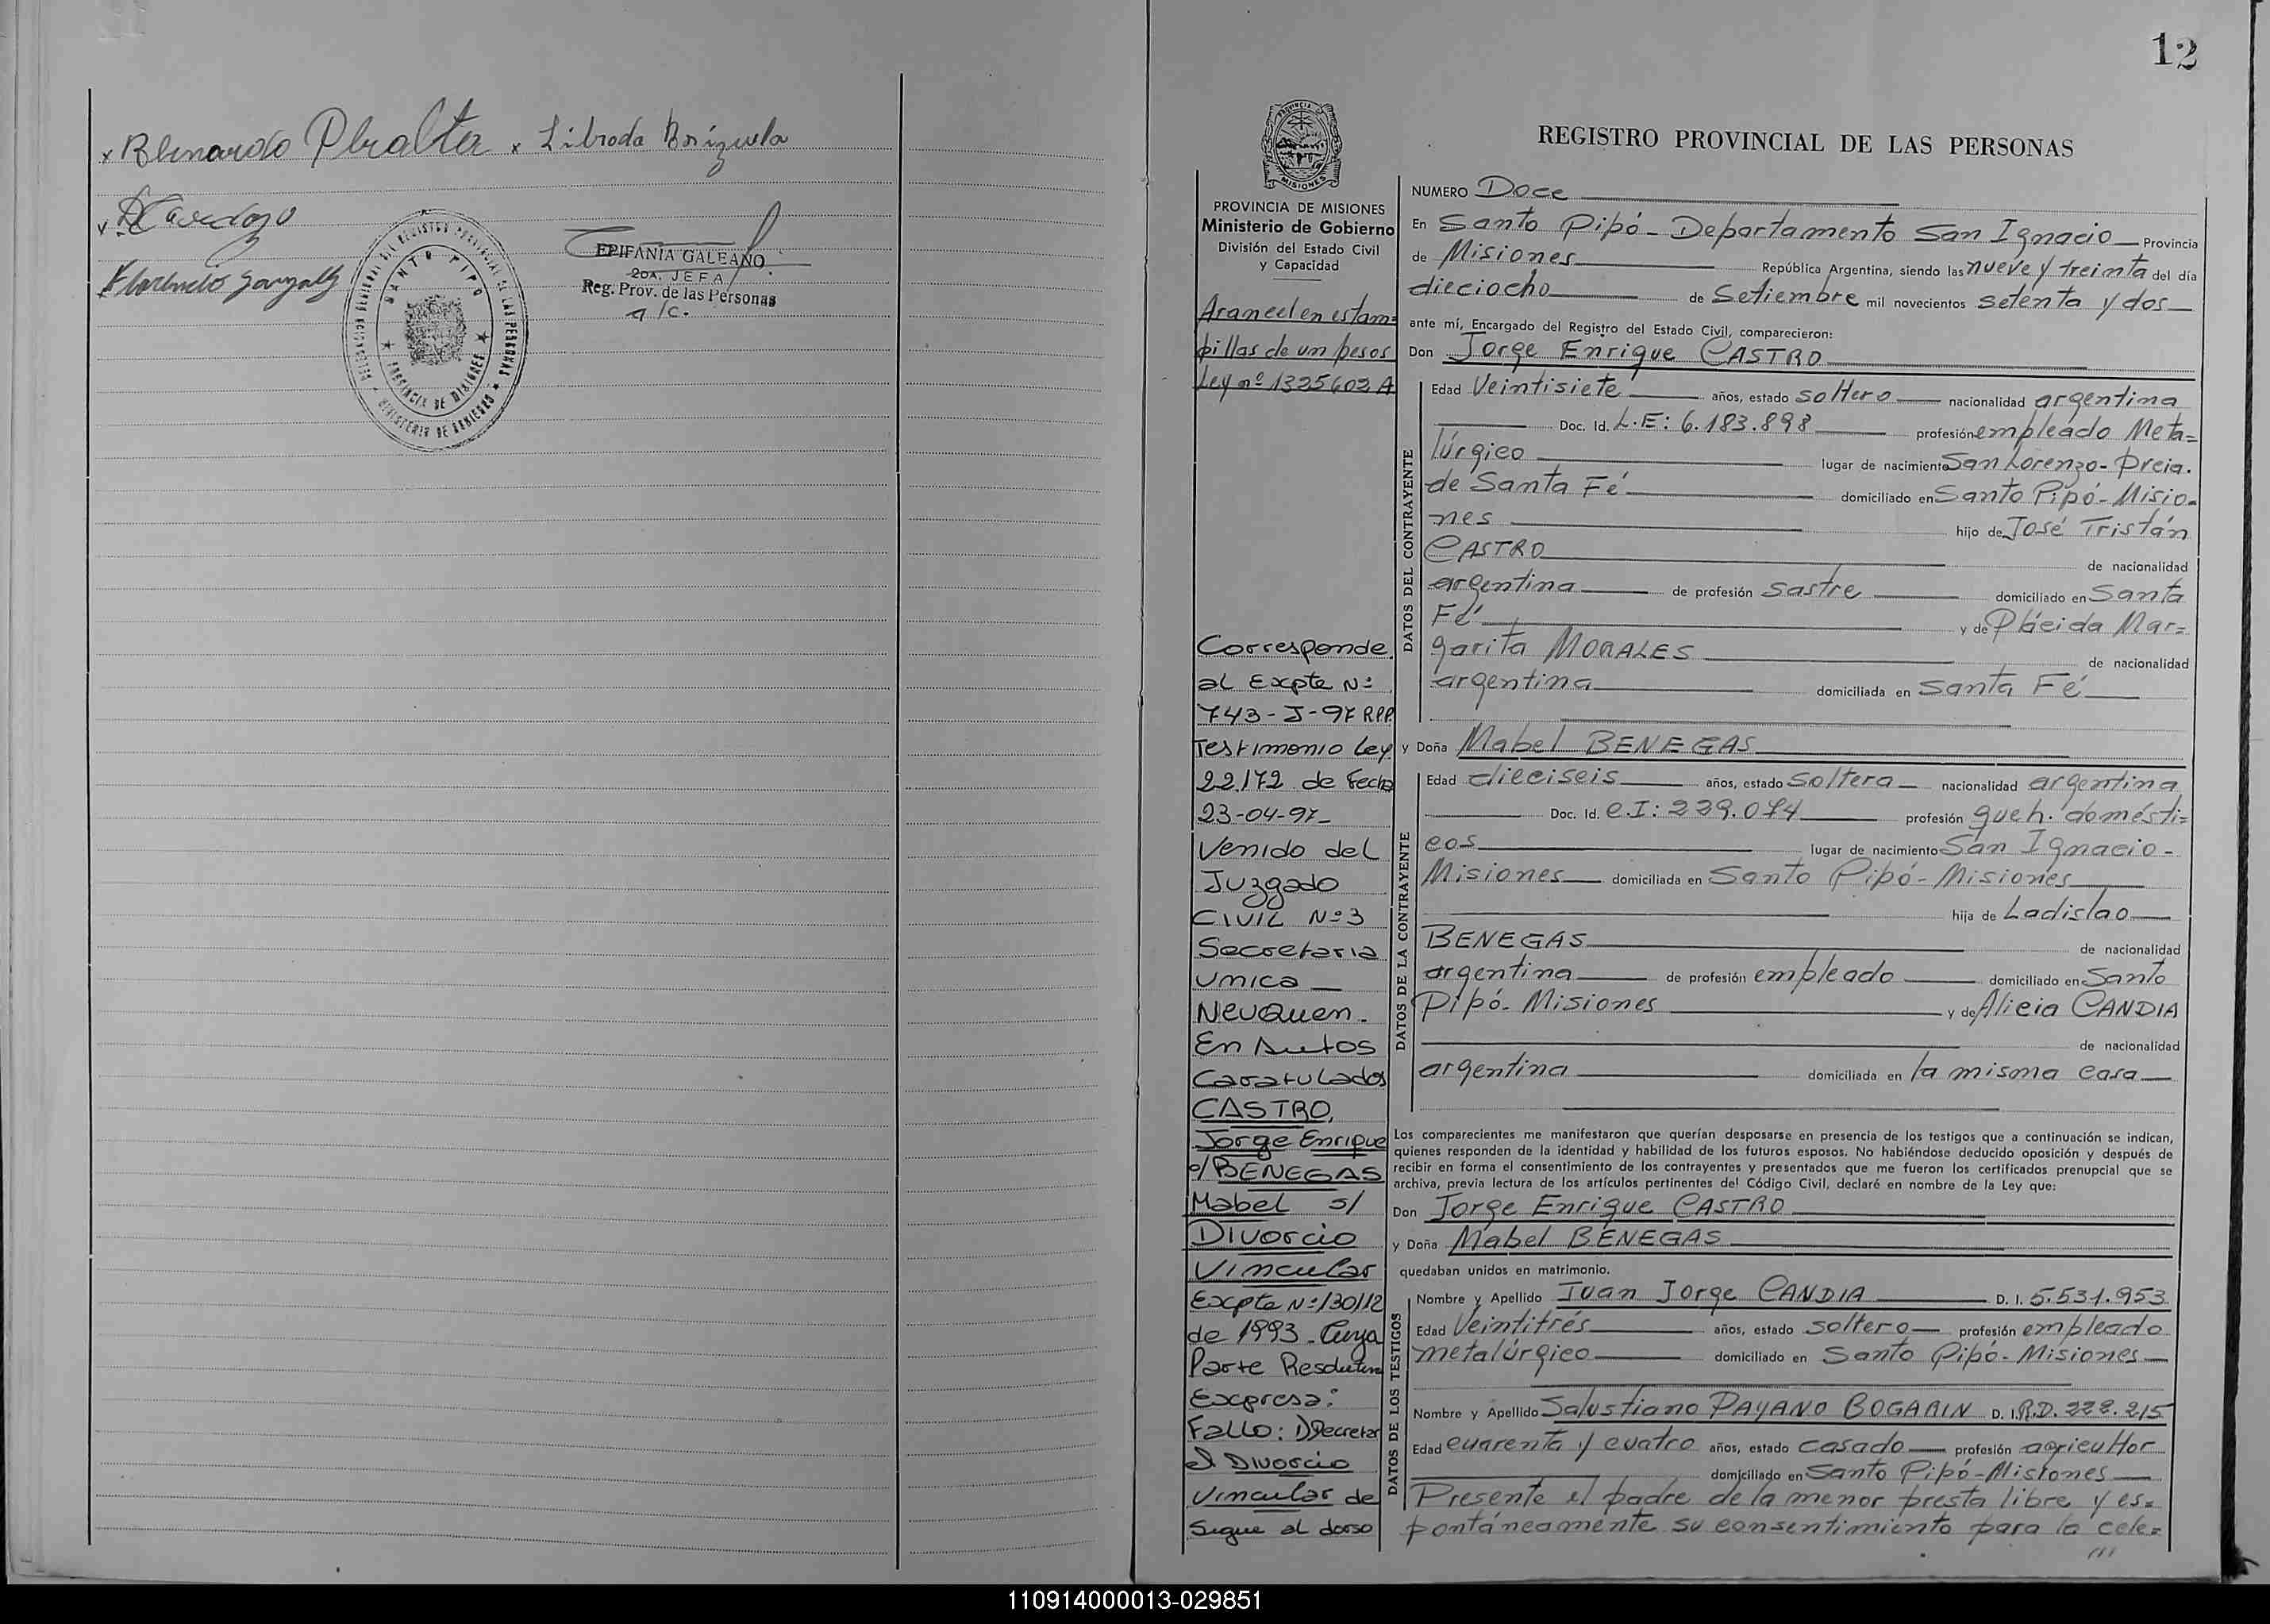 x Bernardo Peralta x Librada Brízuela
EPIFANIA GALEANO
2DA. JEFA
Reg. Prov. de las Personas
a/c.
SANTO PIPO
PROVINCIA DE MISIONES
MINISTERIO DE GOBIERNO
12
PROVINCIA DE
MISIONES
REGISTRO PROVINCIAL DE LAS PERSONAS
PROVINCIA DE MISIONES
Ministerio de Gobierno
División del Estado Civil
y Capacidad
Arancel en estam=
pillas de un pesos
Ley nº 1325602 A
Corresponde
al Expte Nº
743-J-97 RPP.
Testimonio Ley
22.172 de Fecha
23-04-97_
Venido del
Juzgado
CIVIL Nº 3
Secretaria
Unica _
Neuquen.
En Autos
Caratulados
CASTRO,
Jorge Enrique
c/ BENEGAS
Mabel s/
Divorcio
Vincular
Expte Nº 130112
de 1993. Cuya
Parte Resolutiva
Expresa:
Fallo: 1) Decretar
el Divorcio
Vincular de
Sigue al dorso
NUMERO Doce
En Santo Pipó - Departamento San Ignacio Provincia
de Misiones República Argentina, siendo las nueve y treinta del día
dieciocho de Setiembre mil novecientos setenta y dos
ante mí, Encargado del Registro del Estado Civil, comparecieron:
Don Jorge Enrique CASTRO
DATOS DEL CONTRAYENTE
Edad Veintisiete años, estado soltero nacionalidad argentina
Doc. Id. L.E: 6.183.898 profesión empleado Meta=
lúrgico lugar de nacimiento San Lorenzo - Prcia.
de Santa Fé domiciliado en Santo Pipó - Misio=
nes hijo de José Tristán
CASTRO de nacionalidad
argentina de profesión sastre domiciliado en Santa
Fé y de Plácida Mar=
garita MORALES de nacionalidad
argentina domiciliada en Santa Fé
y Doña Mabel BENEGAS
DATOS DE LA CONTRAYENTE
Edad dieciseis años, estado soltera nacionalidad argentina
Doc. Id. C.I: 229.074 profesión queh. domésti=
cos lugar de nacimiento San Ignacio -
Misiones domiciliada en Santo Pipó - Misiones
hija de Ladislao
BENEGAS de nacionalidad
argentina de profesión empleado domiciliado en Santo
Pipó - Misiones y de Alicia CANDIA
de nacionalidad
argentina domiciliada en la misma casa
Los comparecientes me manifestaron que querían desposarse en presencia de los testigos que a continuación se indican,
quienes responden de la identidad y habilidad de los futuros esposos. No habiéndose deducido oposición y después de
recibir en forma el consentimiento de los contrayentes y presentados que me fueron los certificados prenupcial que se
archiva, previa lectura de los artículos pertinentes del Código Civil, declaré en nombre de la Ley que:
Don Jorge Enrique CASTRO
y Doña Mabel BENEGAS
quedaban unidos en matrimonio.
DATOS DE LOS TESTIGOS
Nombre y Apellido Juan Jorge CANDIA D. I. 5.531.953
Edad Veintitrés años, estado soltero profesión empleado
metalúrgico domiciliado en Santo Pipó - Misiones
Nombre y Apellido Salustiano PAYANO BOGARIN D. I. R.D. 222.215
Edad cuarenta y cuatro años, estado casado profesión agricultor
domiciliado en Santo Pipó - Misiones
Presente el padre de la menor presta libre y es=
pontáneamente su consentimiento para la cele=
///
110914000013-029851